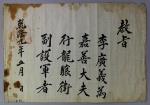 教旨
李廣義爲
嘉善大夫
行龍驤衛
副護軍者
乾隆九年五月日